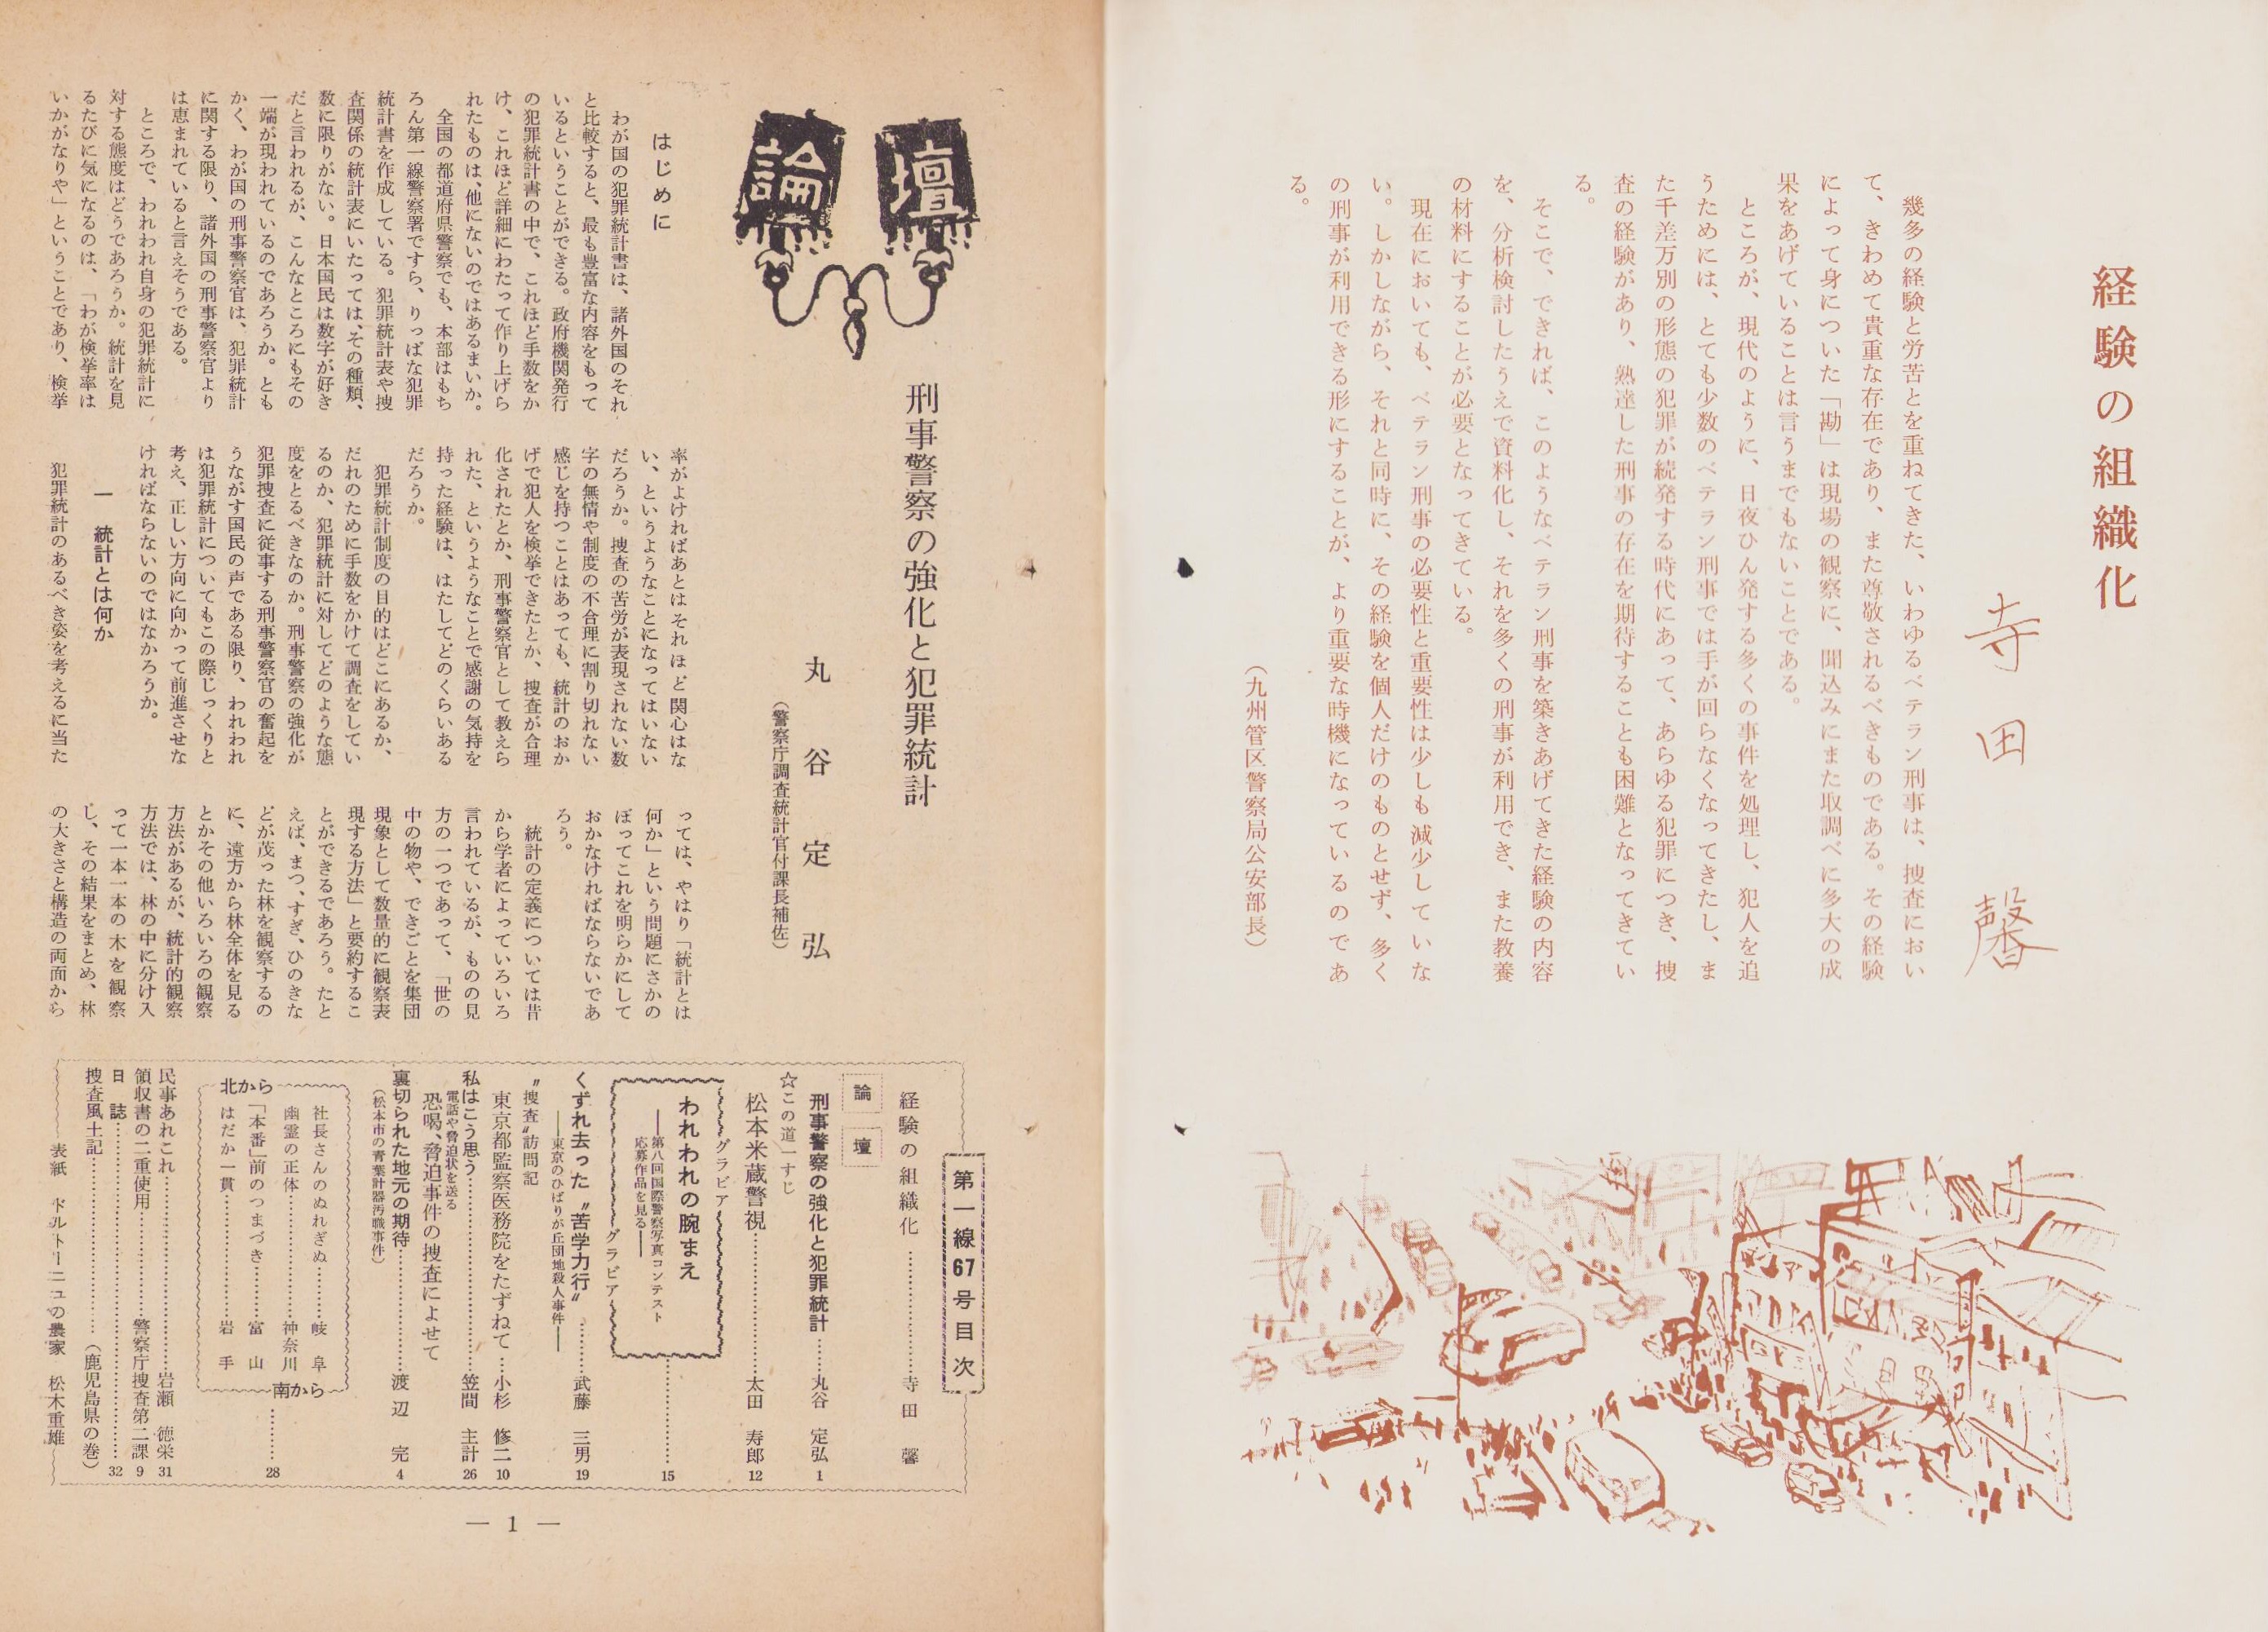 経験の組織化
寺田 馨
幾多の経験と労苦とを重ねてきた、いわゆるベテラン刑事は、捜査におい
て、きわめて貴重な存在であり、また尊敬されるべきものである。その経験
によって身についた「勘」は現場の観察に、聞込みにまた取調べに多大の成
果をあげていることは言うまでもないことである。
ところが、現代のように、日夜ひん発する多くの事件を処理し、犯人を追
うためには、とても少数のベテラン刑事では手が回らなくなってきたし、ま
た千差万別の形態の犯罪が続発する時代にあって、あらゆる犯罪につき、捜
査の経験があり、熟達した刑事の存在を期待することも困難となってきてい
る。
そこで、できれば、このようなベテラン刑事を築きあげてきた経験の内容
を、分析検討したうえで資料化し、それを多くの刑事が利用でき、また教養
の材料にすることが必要となってきている。
現在においても、ベテラン刑事の必要性と重要性は少しも減少していな
い。しかしながら、それと同時に、その経験を個人だけのものとせず、多く
の刑事が利用できる形にすることが、より重要な時機になっているのであ
る。
（九州管区警察局公安部長）
論壇
刑事警察の強化と犯罪統計
丸谷定弘
（警察庁調査統計官付課長補佐）
はじめに
わが国の犯罪統計書は、諸外国のそれ
と比較すると、最も豊富な内容をもって
いるということができる。政府機関発行
の犯罪統計書の中で、これほど手数をか
け、これほど詳細にわたって作り上げら
れたものは、他にないのではあるまいか。
全国の都道府県警察でも、本部はもち
ろん第一線警察署ですら、りっぱな犯罪
統計書を作成している。犯罪統計表や捜
査関係の統計表にいたっては、その種類、
数に限りがない。日本国民は数字が好き
だと言われるが、こんなところにもその
一端が現われているのであろうか。とも
かく、わが国の刑事警察官は、犯罪統計
に関する限り、諸外国の刑事警察官より
は恵まれていると言えそうである。
ところで、われわれ自身の犯罪統計に
対する態度はどうであろうか。統計を見
るたびに気になるのは、「わが検挙率は
いかがなりや」ということであり、検挙
率がよければあとはそれほど関心はな
い、というようなことになってはいない
だろうか。捜査の苦労が表現されない数
字の無情や制度の不合理に割り切れない
感じを持つことはあっても、統計のおか
げで犯人を検挙できたとか、捜査が合理
化されたとか、刑事警察官として教えら
れた、というようなことで感謝の気持を
持った経験は、はたしてどのくらいある
だろうか。
犯罪統計制度の目的はどこにあるか、
だれのために手数をかけて調査をしてい
るのか、犯罪統計に対してどのような態
度をとるべきなのか。刑事警察の強化が
犯罪捜査に従事する刑事警察官の奮起を
うながす国民の声である限り、われわれ
は犯罪統計についてもこの際じっくりと
考え、正しい方向に向かって前進させな
ければならないのではなかろうか。
一 統計とは何か
犯罪統計のあるべき姿を考えるに当た
っては、やはり「統計とは
何か」という問題にさかの
ぼってこれを明らかにして
おかなければならないであ
ろう。
統計の定義については昔
から学者によっていろいろ
言われているが、ものの見
方の一つであって、「世の
中の物や、できごとを集団
現象として数量的に観察表
現する方法」と要約するこ
とができるであろう。たと
えば、まつ、すぎ、ひのきな
どが茂った林を観察するの
に、遠方から林全体を見る
とかその他いろいろの観察
方法があるが、統計的観察
方法では、林の中に分け入
って一本一本の木を観察
し、その結果をまとめ、林
の大きさと構造の両面から
第一線67号目次
経験の組織化……………寺田 馨
論壇
刑事警察の強化と犯罪統計……丸谷 定弘 1
☆この道一すじ
松本米蔵警視……………太田 寿郎 12
グラビア
われわれの腕まえ
――第八回国際警察写真コンテスト
応募作品を見る――
グラビア
……………15
くずれ去った〝苦学力行〟……武藤 三男 19
――東京のひばりが丘団地殺人事件――
〝捜査〟訪問記
東京都監察医務院をたずねて…小杉 修二 10
私はこう思う……………笠間 主計 26
電話や脅迫状を送る
恐喝、脅迫事件の捜査によせて
裏切られた地元の期待……………渡辺 完 4
（松本市の青葉計器汚職事件）
北から
社長さんのぬれぎぬ………岐阜
幽霊の正体……………神奈川
「本番」前のつまづき………富山
はだか一貫……………岩手
南から
…………28
民事あれこれ……………岩瀬 徳栄 31
領収書の二重使用…………警察庁捜査第二課 9
日誌……………………32
捜査風土記……………（鹿児島県の巻）
表紙 ドルトーニュの農家 松木重雄
― 1 ―